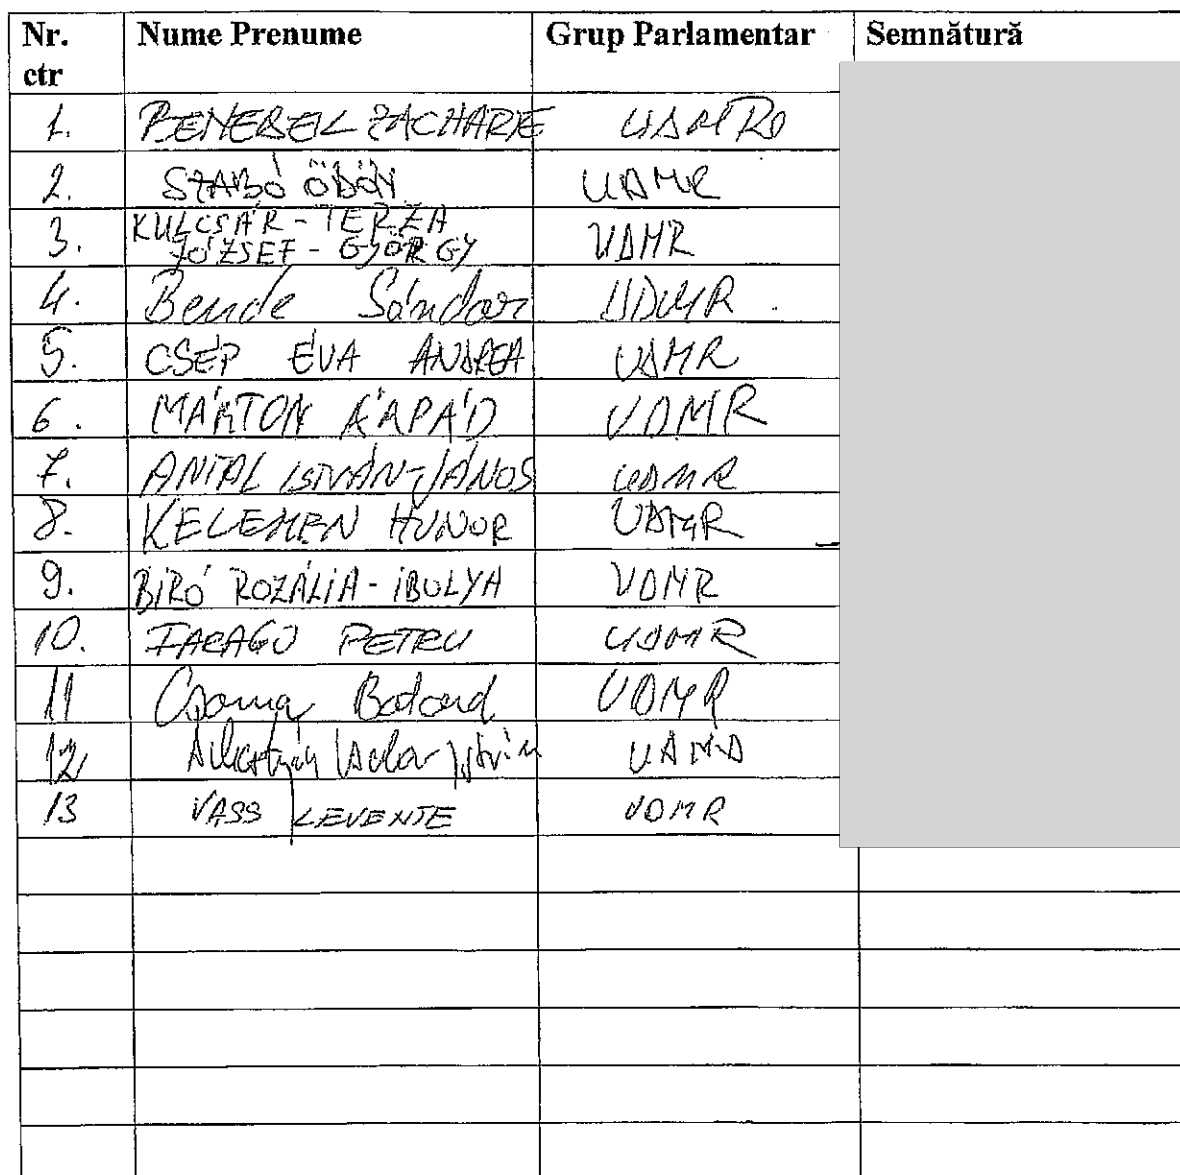 Nr. ctr Nume Prenume Grup Parlamentar Semnătură
1. BENEBEL ZACHARIE
2. SZABÓ ÖDÖN UDMR
3. KULCSÁR-TERZA JÓZSEF-GYÖRGY UDMR
4. Bende Sándor UDMR
5. CSÉP ÉVA ANDREA UDMR
6. MÁRTON ÁRPÁD UDMR
7. ANTAL ISTVÁN-JÁNOS UDMR
8. KELEMEN HUNOR UDMR
9. BIRÓ ROZÁLIA-IBOLYA UDMR
10. FARAGÓ PETRU UDMR
11 Csoma Botond UDMR
12 István
13 VASS LEVENTE UDMR